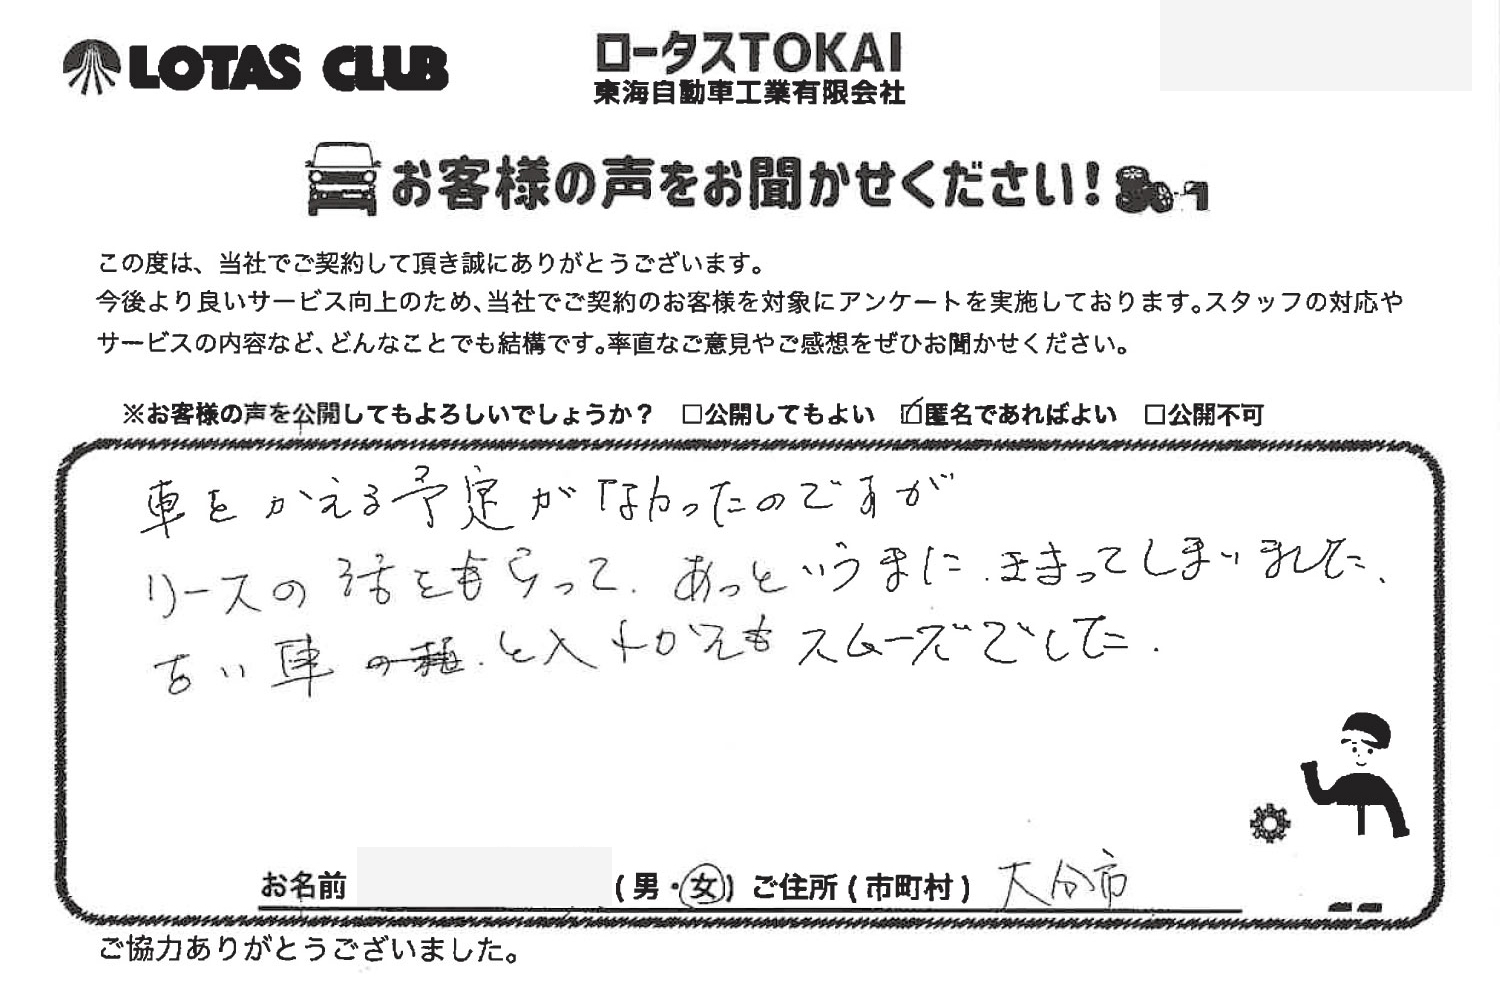 LOTAS CLUB
ロータスTOKAI
東海自動車工業有限会社
お客様の声をお聞かせください!
この度は、当社でご契約して頂き誠にありがとうございます。
今後より良いサービス向上のため、当社でご契約のお客様を対象にアンケートを実施しております。スタッフの対応や
サービスの内容など、どんなことでも結構です。率直なご意見やご感想をぜひお聞かせください。
※お客様の声を公開してもよろしいでしょうか? □公開してもよい ☑匿名であればよい □公開不可
車をかえる予定がなかったのですが
リースの話をもらって、あっというまに、きまってしまいました、
古い車の種、と入れかえもスムーズでした.
お名前 (男・女) ご住所(市町村) 大分市
ご協力ありがとうございました。